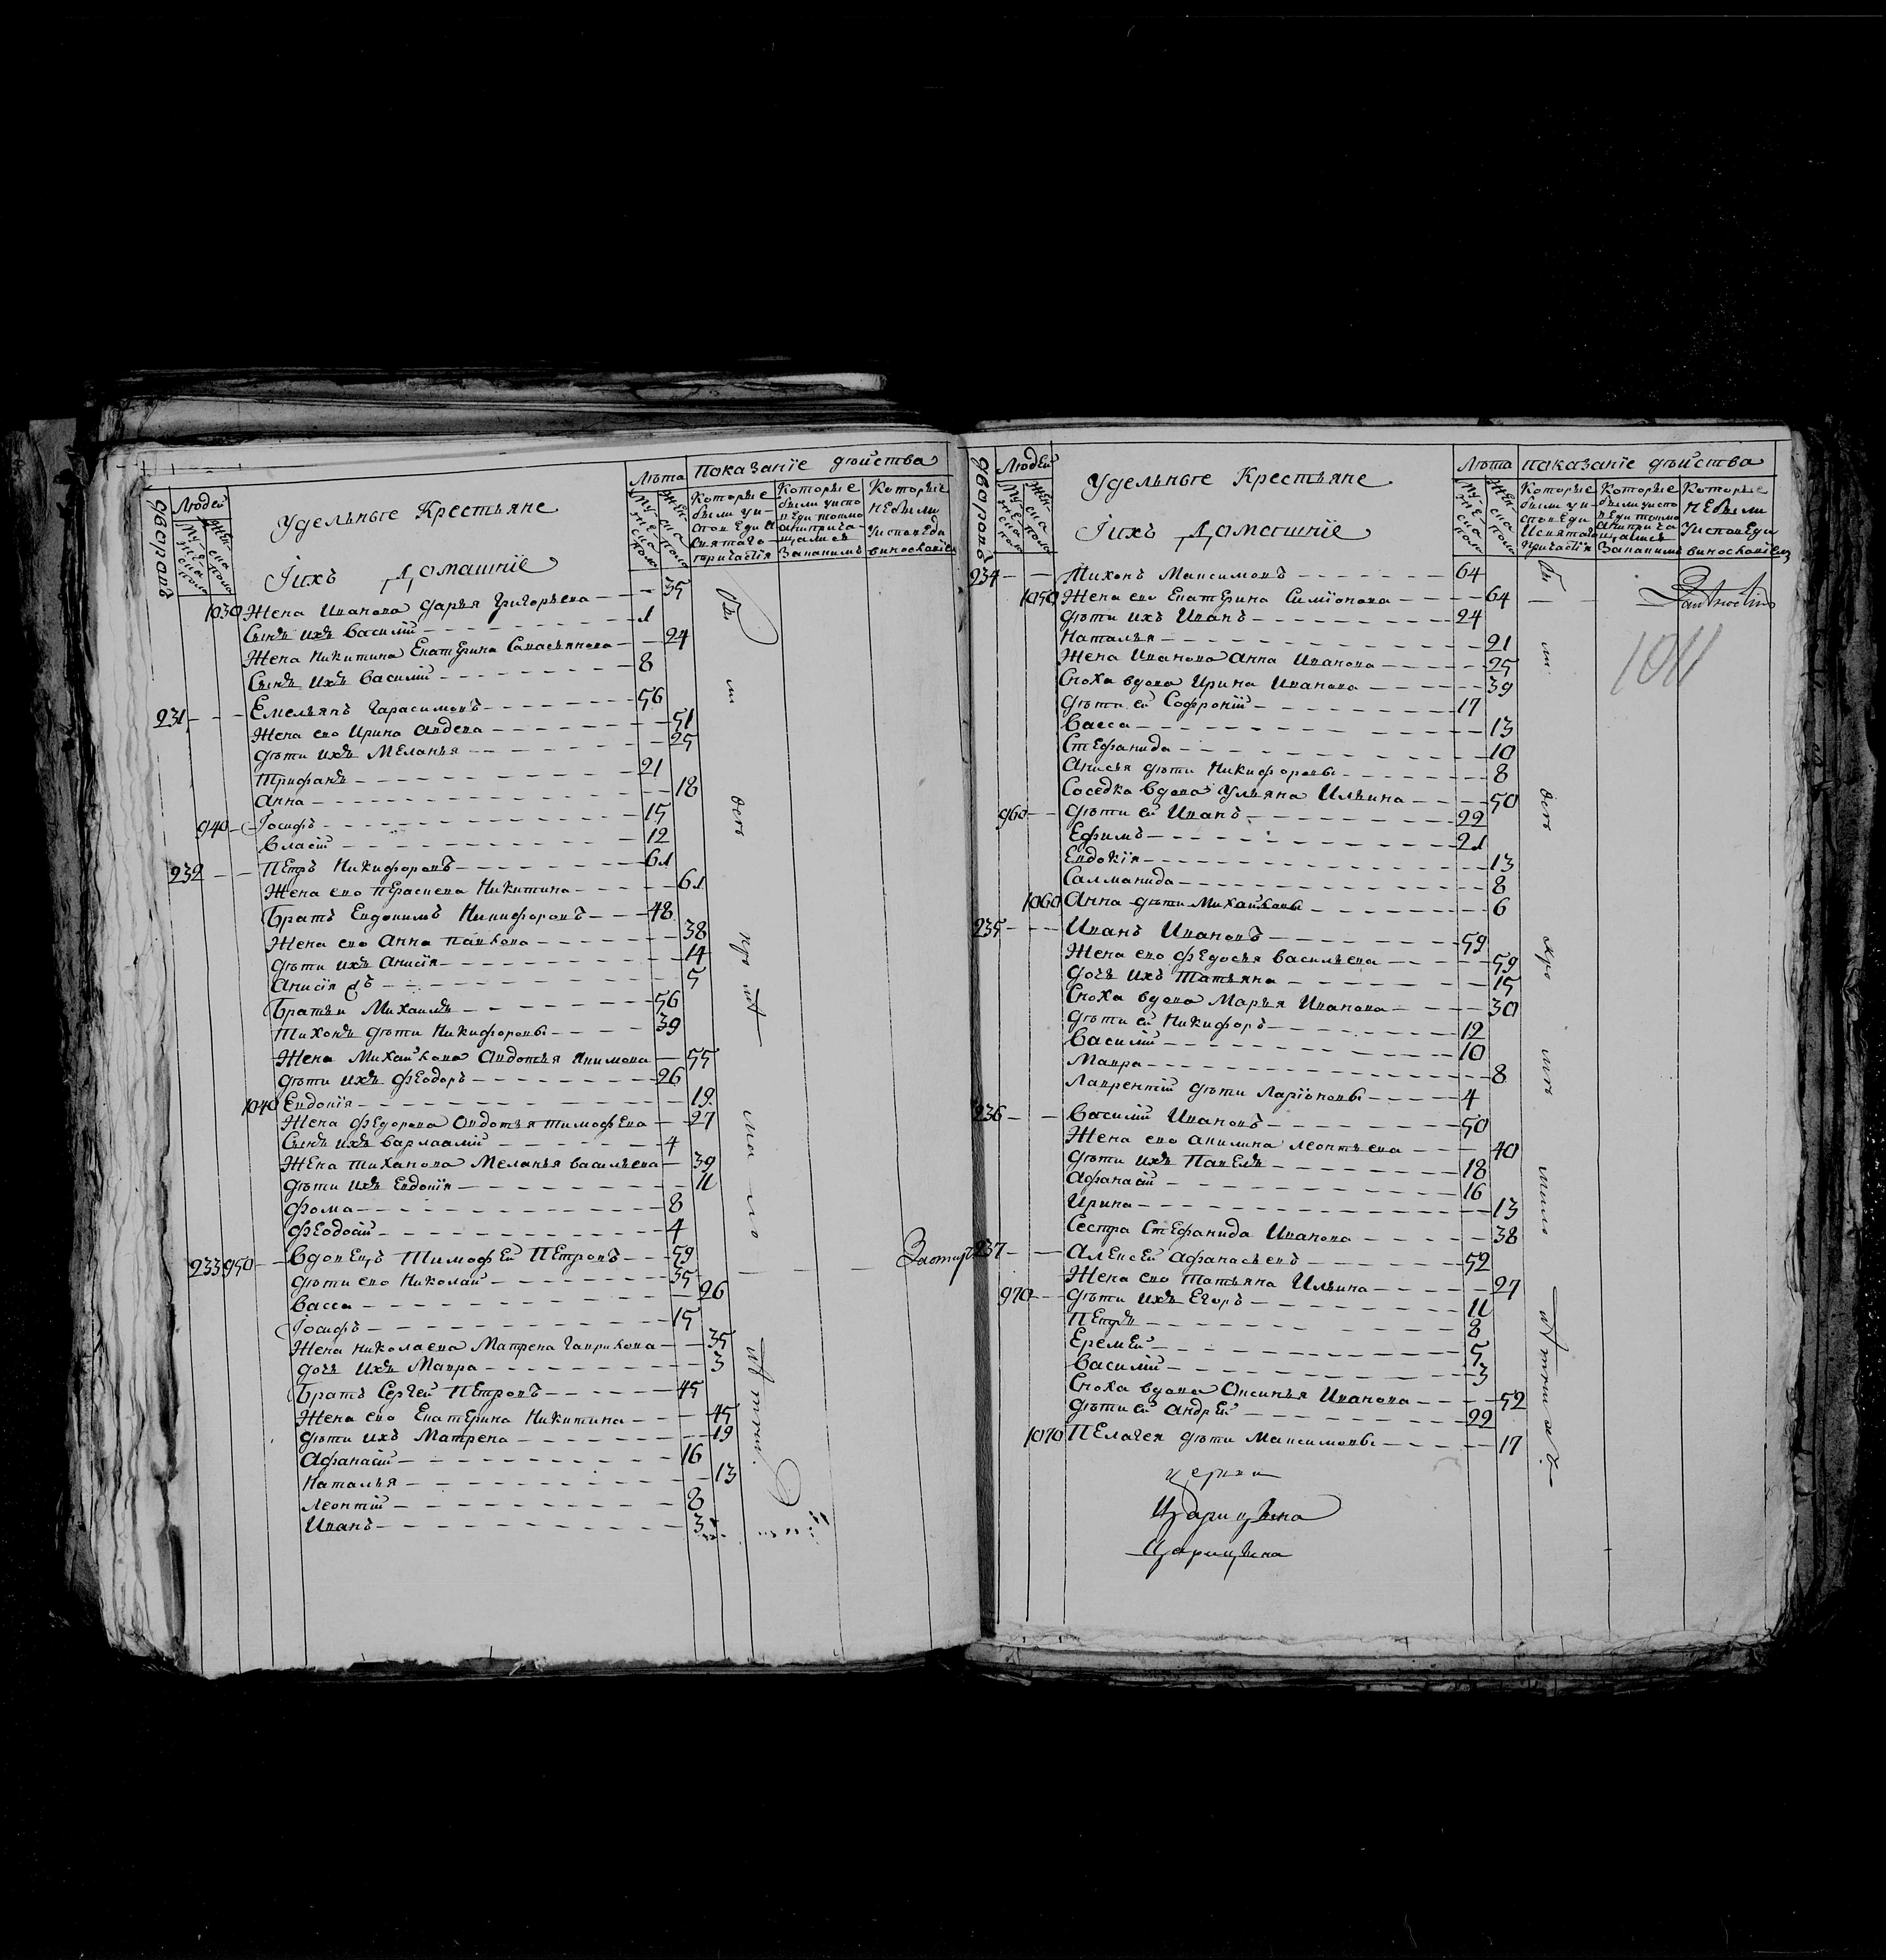 дворовъ
Людей
мужеска полу
женска полу
Удельныѣ Крестьяне
Iихъ Домашнiе
Лѣта
мужеска полу
женска полу
показанiе дѣйства
Которые были уисповеди и святаго причастiя
Которые были уисповеди токмо а непричащалися
Которые небыли уисповеди
1030 Жена Иванова Дарья Григорьева 35
Сынъ ихъ Василiй 1
Жена Никитина Екатерина Савасьянова 24
Сынъ ихъ Василiй 8
231 Емельянъ Гарасимовъ 56
Жена ево Ирина Авдева 51
дѣти ихъ Меланья 25
Трифанъ 21
Анна 18
940 Iосифъ 15
Власiй 12
232 Петръ Никифоровъ 61
Жена ево Пераскева Никитина 61
Братъ Евдокимъ Никифоровъ 48
Жена ево Анна Павлова 38
дѣти ихъ Анисiя 14
Анисiя 5
Братья Михаилъ 56
Тихонъ дѣти Никифоровы 39
Жена Михайлова Авдотья Акимова 55
дѣти ихъ Феодоръ 26
1040 Евдокiя 19
Жена Федорова Авдотья Тимофева 27
Сынъ ихъ Варлаамiй 4
Жена Тиханова Меланья Васильева 39
дѣти ихъ Евдокiя 11
Фома 8
Феодосiй 4
233 950 Вдовецъ Тимофей Петровъ 59
дѣти ево Николай 35
Васса 26
Iосифъ 15
Жена Николаева Матрена Гаврилова 35
дочь ихъ Мавра 3
Братъ Сергей Петровъ 45
Жена ево Екатерина Никитина 45
дѣти ихъ Матрена 19
Афанасiй 16
Наталья 13
Леонтiй 8
Иванъ 3
дворовъ
Людей
мужеска полу
женска полу
Удельныѣ Крестьяне
Iихъ Домашнiе
Лѣта
мужеска полу
женска полу
показанiе дѣйства
Которые были уисповеди и святаго причастiя
Которые были уисповеди токмо а непричащались
Которые небыли уисповеди
234 Тихонъ Максимовъ 64
1050 Жена ево Екатерина Симiонова 64
дѣти ихъ Иванъ 24
Наталья 21
Жена Иванова Анна Иванова 25
Сноха вдова Ирина Иванова 39
дѣти ей Софронiй 17
Васса 13
Стефанида 10
Анисья дѣти Никифоровы 8
Соседка вдова Ульяна Ильина 50
960 дѣти ей Иванъ 22
Ефимъ 21
Евдокiя 13
Салманида 8
1060 Анна дѣти Михайловы 6
235 Иванъ Ивановъ 59
Жена ево Федосья Васильева 59
дочь ихъ Татьяна 15
Сноха вдова Марья Иванова 30
дѣти ей Никифоръ 12
Василiй 10
Мавра 8
Лаврентiй дѣти Ларiоновы 4
236 Василiй Ивановъ 50
Жена ево Акилина Леонтьева 40
дѣти ихъ Павелъ 18
Афанасiй 16
Ирина 13
Сестра Стефанида Иванова 38
237 Алексей Афанасьевъ 52
Жена ево Татьяна Ильина 27
970 дѣти ихъ Егоръ 11
Петръ 8
Еремей 5
Василiй 3
Сноха вдова Аксинья Иванова 52
дѣти ей Андрей 22
1070 Пелагея дѣти Максимовы 17
1011
Царицына
Царицына